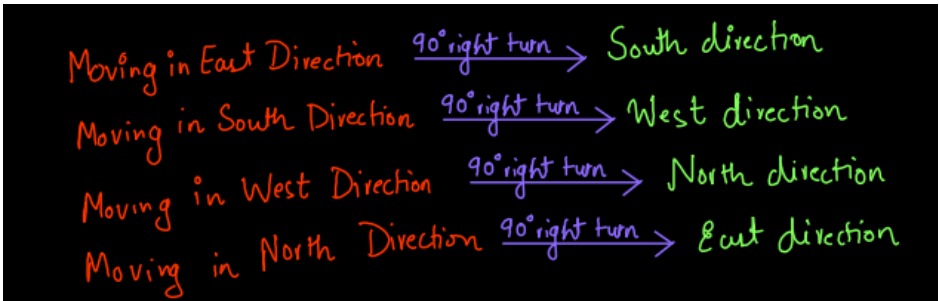 Moving in East Direction 90° right turn → South direction
Moving in South Direction 90° right turn → West direction
Moving in West Direction 90° right turn → North direction
Moving in North Direction 90° right turn → East direction